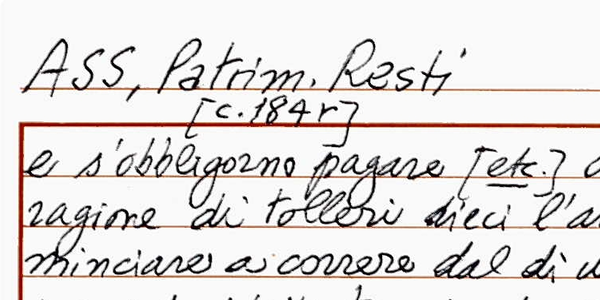 ASS, Patrim. Resti
[c. 184r]
e s'obbligorno pagare [etc.]
ragione di tolleri dieci l'
minciare a correre dal dì